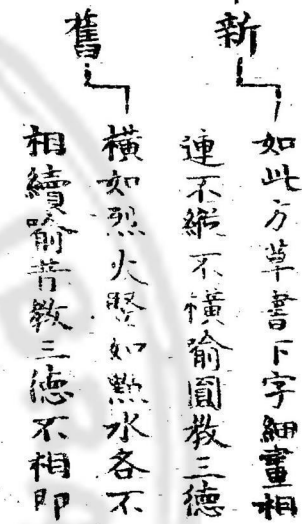 新
如此方草書下字細畫相
連不縱不橫喻圓教三德
舊
橫如烈火竪如點水各不
相續喻昔教三德不相即